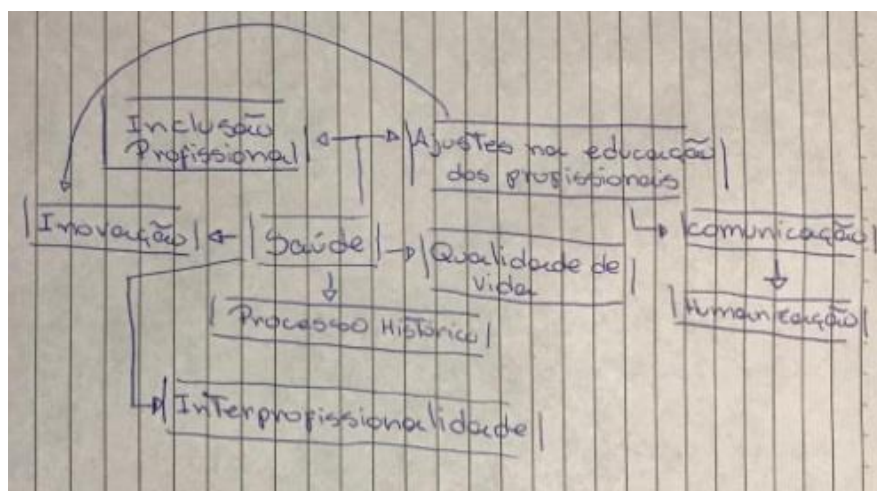 Inclusão
Profissional
Ajustes na educação
dos profissionais
Inovação
Saúde
Qualidade de
vida
comunicação
Humanização
Processo Histórico
Interprofissionalidade